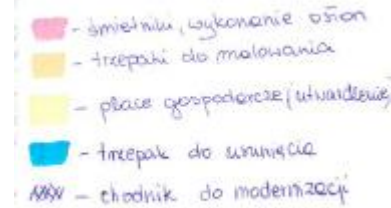 - śmietniki, wykonanie osłon
- trzepaki do malowania
- place gospodarcze (utwardzenie)
- trzepak do usunięcia
- chodnik do modernizacji